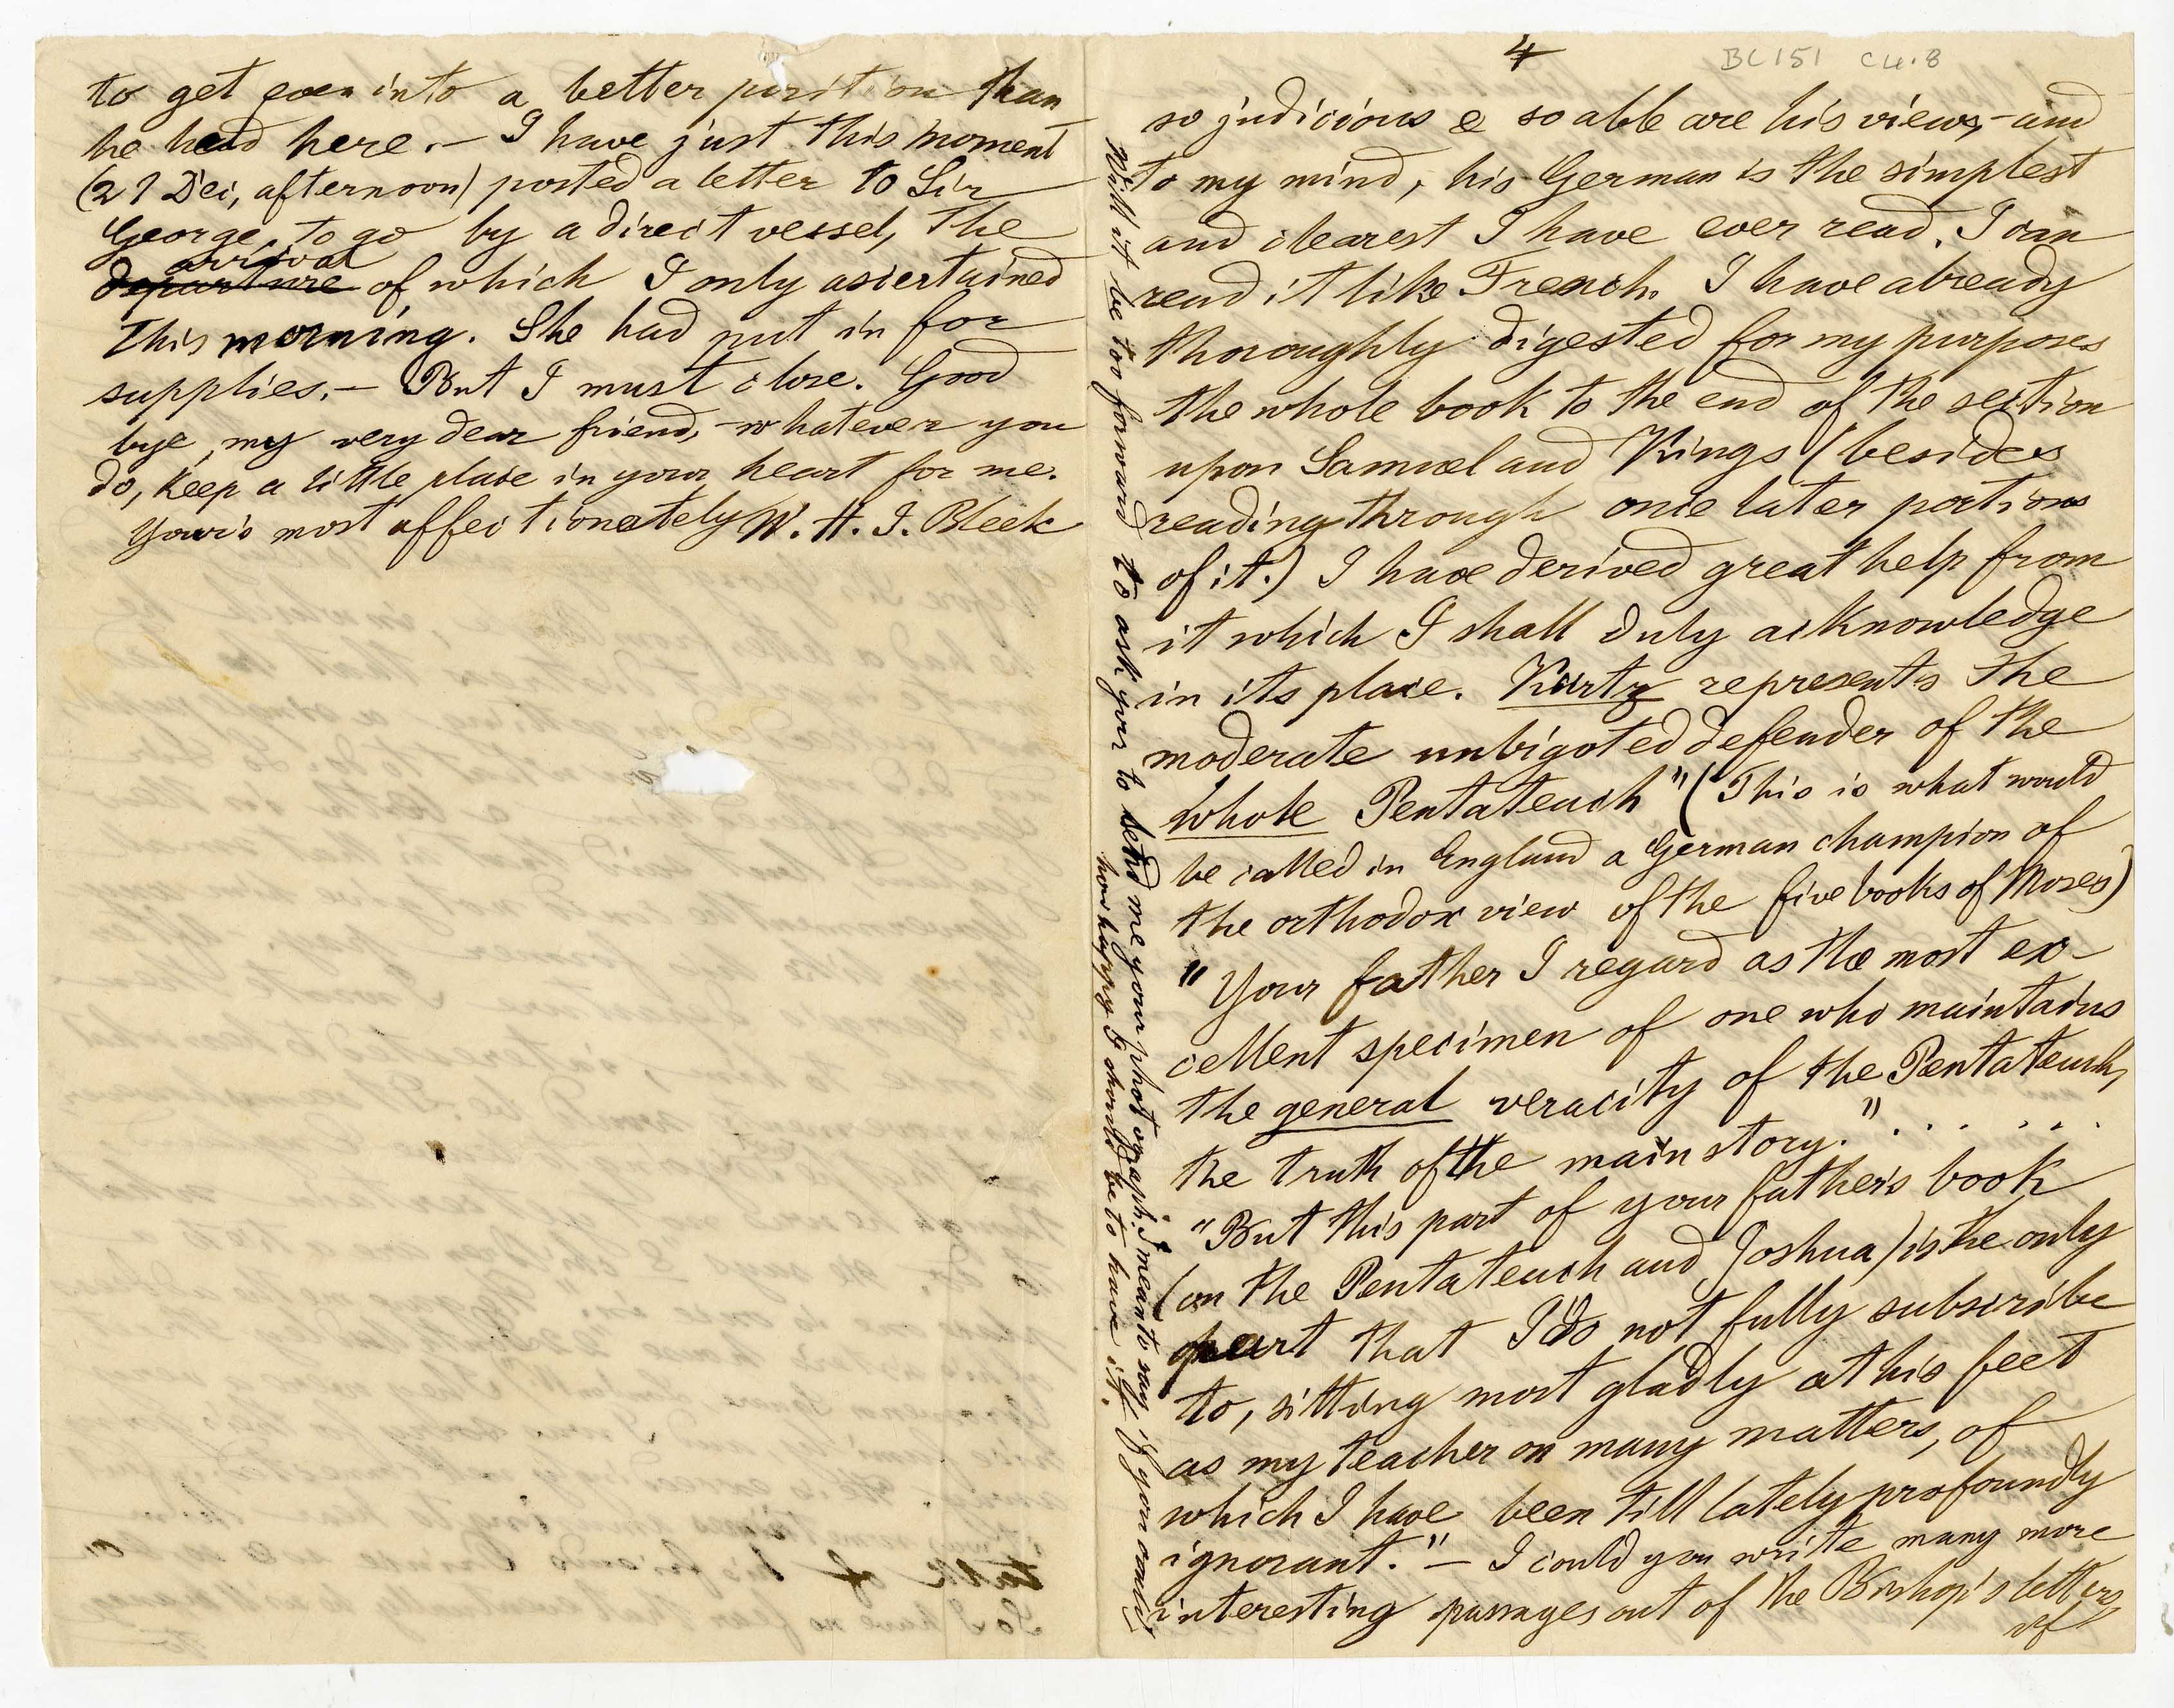 to get even into a better position than
he had here. – I have just this moment
(21 Dec, afternoon) posted a letter to Sir
George, to go by a direct vessel, the
arrival
departure of which I only ascertained
this morning. She had put in for
supplies. – But I must close. Good
bye, my very dear friend, whatever you
do, keep a little place in your heart for me.
Your's most affectionately W. H. I. Bleek
4
BC 151 C4.8
so judicious & so able are his views, – and
to my mind, his German is the simplest
and clearest I have ever read. I can
read it like French. I have already
thoroughly digested for my purposes
the whole book to the end of the section
upon Samuel and Kings (besides
reading through once later portions
of it.) I have derived great help from
it which I shall duly acknowledge
in its place. Kurtz represents the
moderate unbigoted defender of the
whole Pentateuch" (This is what would
be called in England a German champion of
the orthodox view of the five books of Moses)
"Your father I regard as the most ex-
cellent specimen of one who maintains
the general veracity of the Pentateuch,
the truth of the main story." . . . . . .
"But this part of your father's book
(on the Pentateuch and Joshua) is the only
part that I do not fully subscribe
to, sitting most gladly at his feet
as my teacher on many matters, of
which I have been till lately profoundly
ignorant." – I could you write many more
interesting passages out of the Bishop's letters
of
Will it be too forward to ask you to send me your photograph. I mean to say if you could
how happy I should be to have it.